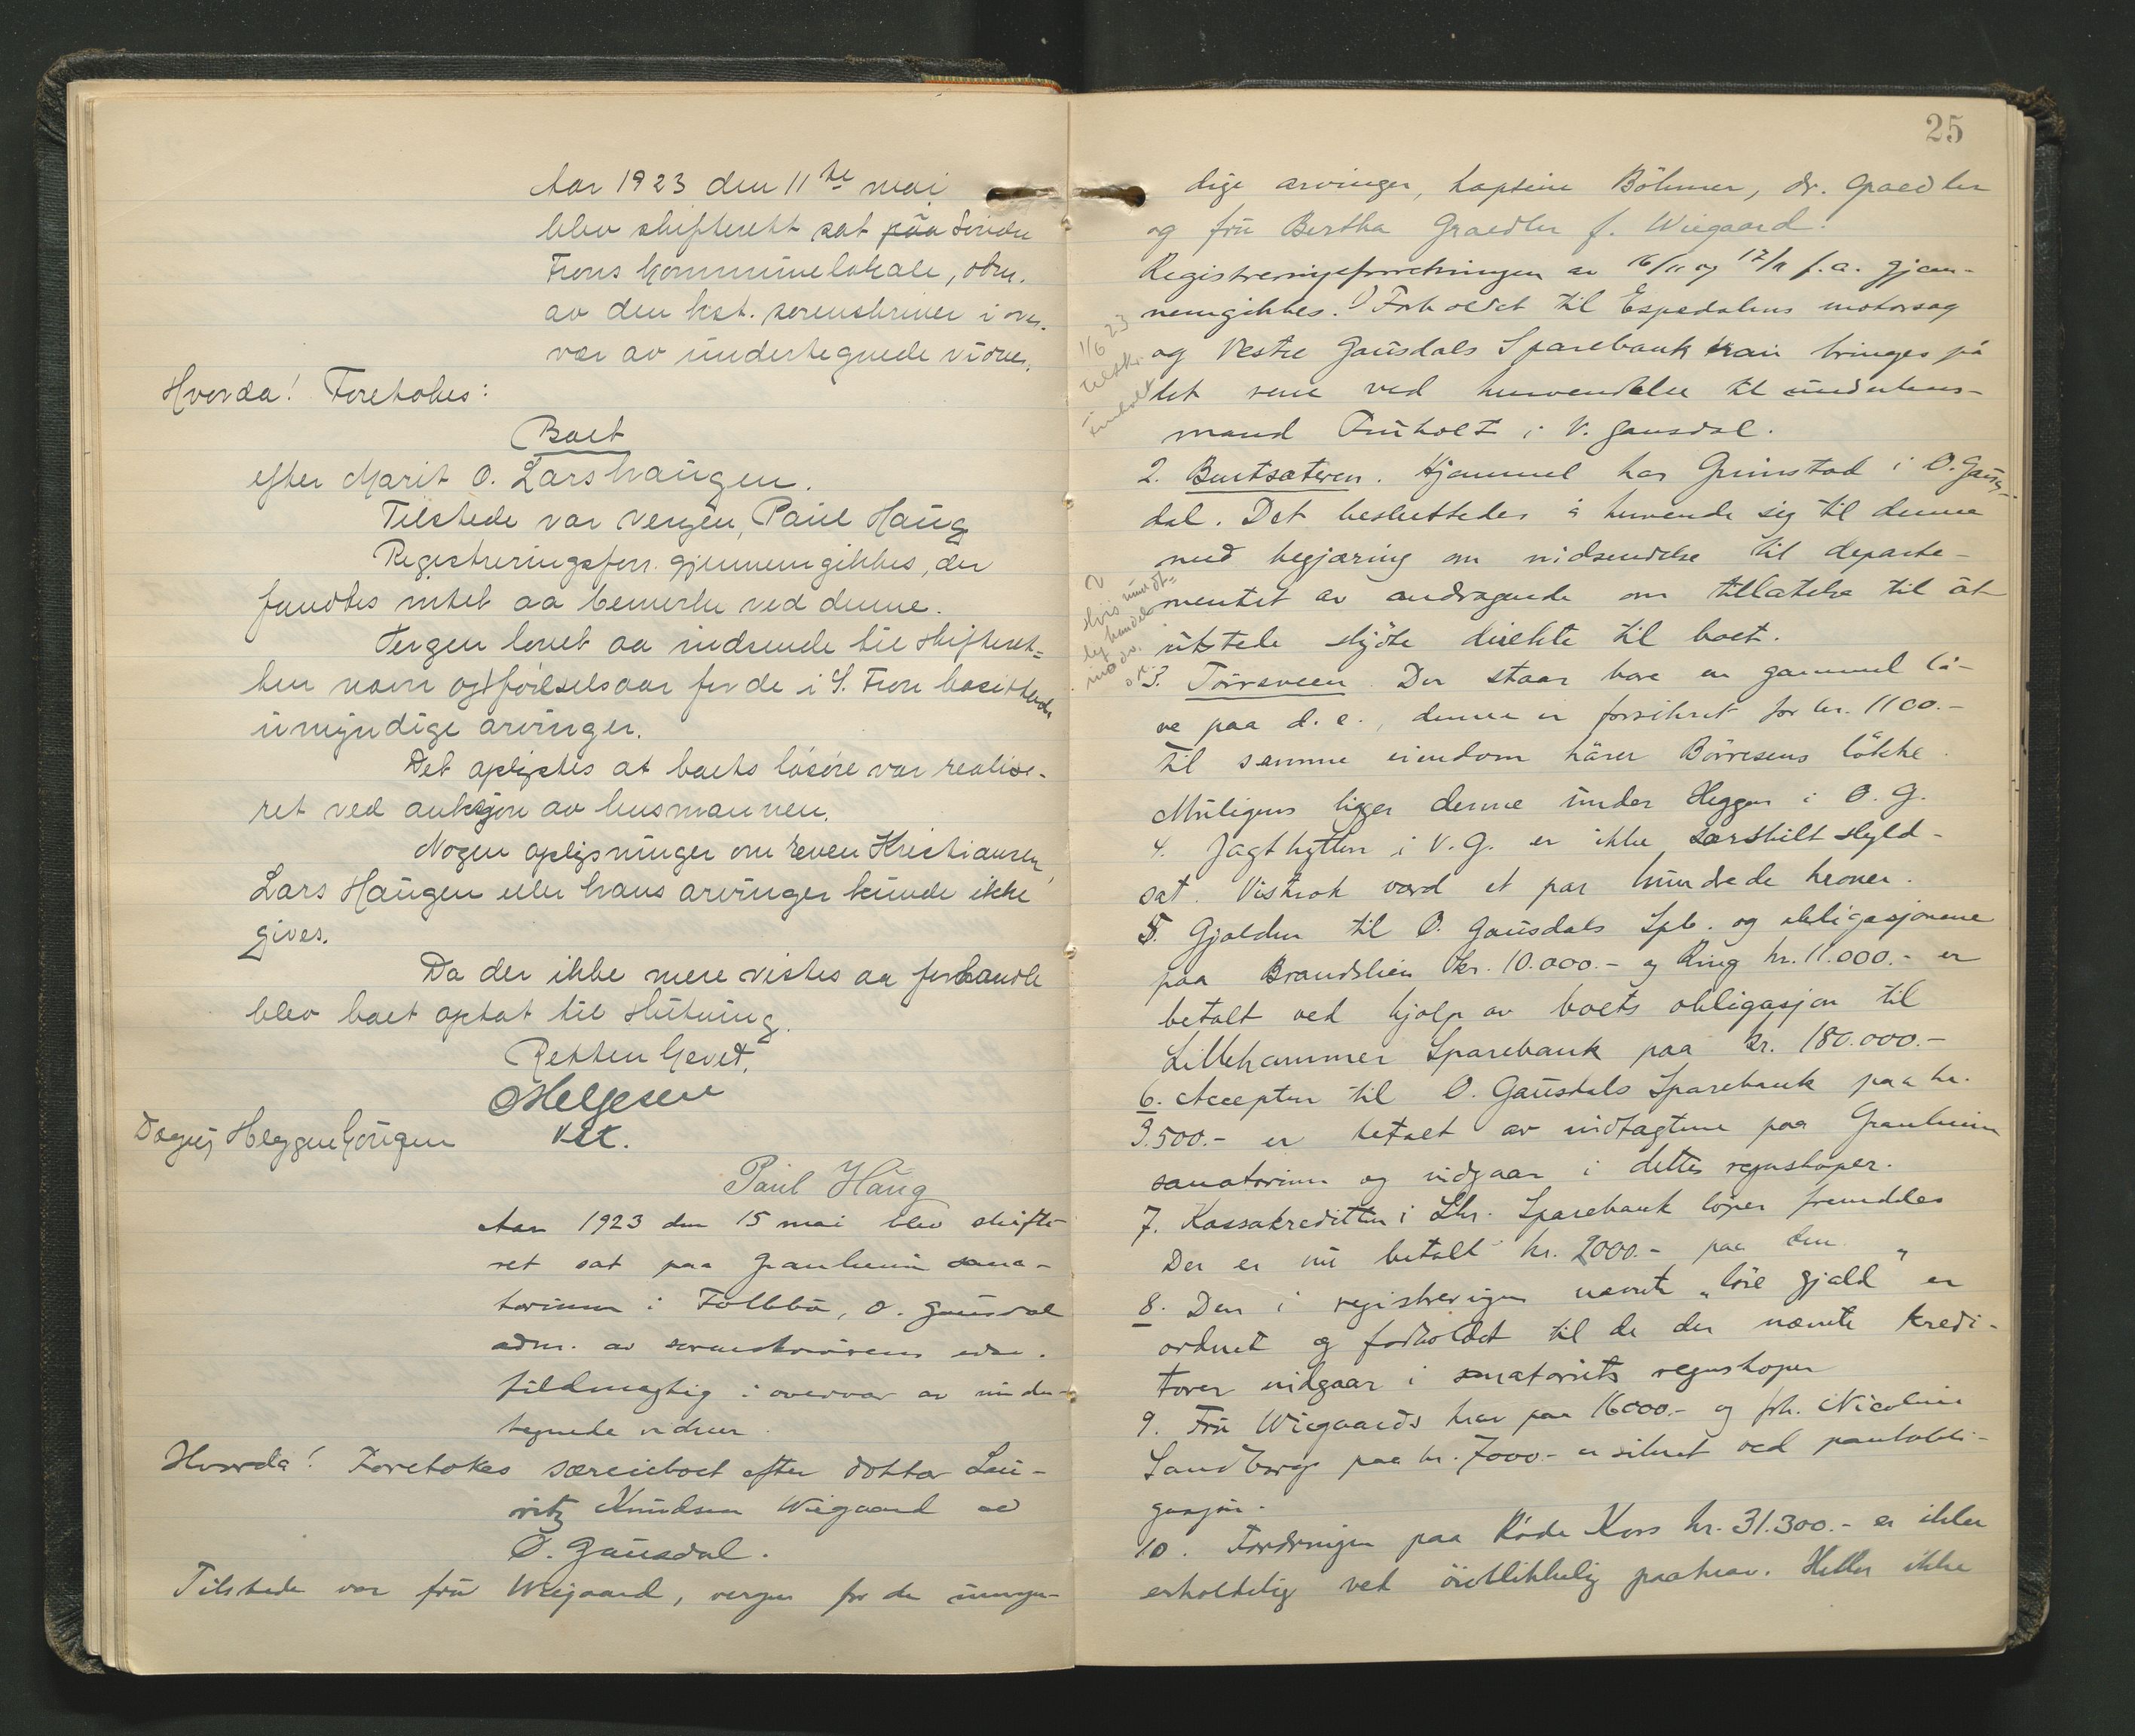 Aar 1923 den 11te mai
blev skifterett sat paa Søndre
Frons kommunelokale, adm.
av den kst. sorenskriver i over-
vær av undertegnede vidner.
Hvorda! Foretokes:
Boet
efter Marit O. Larshaugen.
Tilstede var vergen, Paul Haug
Registreringsforr. gjennemgikkes, der
fandtes intet aa bemerke ved denne.
Vergen lovet aa indsende til skifteret-
ten navn og fødselsaar for de i S. Fron bosittende
umyndige arvinger.
Det oplystes at boets løsøre var realise-
ret ved auksjon av lensmannen.
Nogen oplysninger om Even Kristiansen
Lars Haugen eller hans arvinger kunde ikke
gives.
Da der ikke mere vistes aa forhandle
blev boet optat til slutning.
Retten hevet.
OHelgesen
kst.
Dagny Heggenhougen
Paul Haug
Aar 1923 den 15 mai blev skifte-
ret sat paa Granheim sana-
torium i Follebu, Ø. Gausdal
adm. av sorenskriverens edsv.
fuldmægtig i overvær av under-
tegnede vidner.
Hvorda! Foretokes særeieboet efter doktor Lau-
ritz Knudsen Wiegaard av
Ø. Gausdal.
Tilstede var fru Wiegaard, vergen for de umyn-
25
dige arvinger, kaptein Böhmer, dr. Graedler
og fru Bertha Graedler f. Wiegaard.
Registreringsforretningen av 16/11 og 17/11 f.a. gjen-
nemgikkes. 1) Forholdet til Espedalens motorsag
og Vestre Gausdals Sparebank kan bringes på
det rene ved henvendelse til underlens-
mand Fruholt i V. Gausdal.
1/6 23
tilskr.
Fruholt
2. Buntsæteren. Hjemmel har Grimstad i Ø. Gaus-
dal. Det besluttedes å henvende sig til denne
med begjæring om indsendelse til departe-
mentet av andragende om tillatelse til at
utstede skjøte direkte til boet.
3. Torvsveen. Der staar bare en gammel lå-
ve paa d. e., denne er forsikret for kr. 1100.-
Til samme eiendom hører Børresens løkke
Muligens ligger denne under Heggen i Ø. G.
4. Jagthytten i V. G. er ikke særskilt skyld-
sat. Vistnok værd et par hundrede kroner.
5. Gjælden til Ø. Gausdals Spb. og obligasjonene
paa Brandslien kr. 10.000.- og Ring kr. 11.000.- er
betalt ved hjælp av boets obligasjon til
Lillehammer Sparebank paa kr. 180.000.-
6. Accepten til Ø. Gausdals Sparebank paa kr.
3.500.- er betalt av indtægtene paa Granheim
sanatorium og indgaar i dettes regnskaper.
7. Kassakreditten i Lhr. Sparebank løper fremdeles
Der er nu betalt kr. 2000.- paa den
8. Den i registreringen nævnte "løse gjæld" er
ordnet og forholdet til de der nævnte kredi-
torer indgaar i sanatoriets regnskaper
9. Fru Wiegaards krav paa 16000.- og frk. Nicoline
Sandborgs paa kr. 7000.- er sikret ved pantobli-
gasjon.
10. Fordringen paa Røde Kors kr. 31.300.- er ikke
erholdelig ved øieblikkelig paakrav. Heller ikke